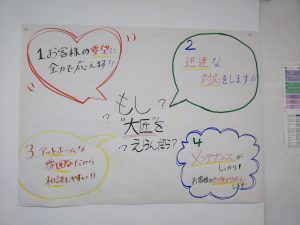 1 お客様の要望に
全力で応えます!!
2
迅速な
対応をします!!
もし
"大匠"を
えらんだら?
3 アットホームな
雰囲気だから
相談しやすい!!
4
メンテナンスが
しっかり!!
お客様の
します